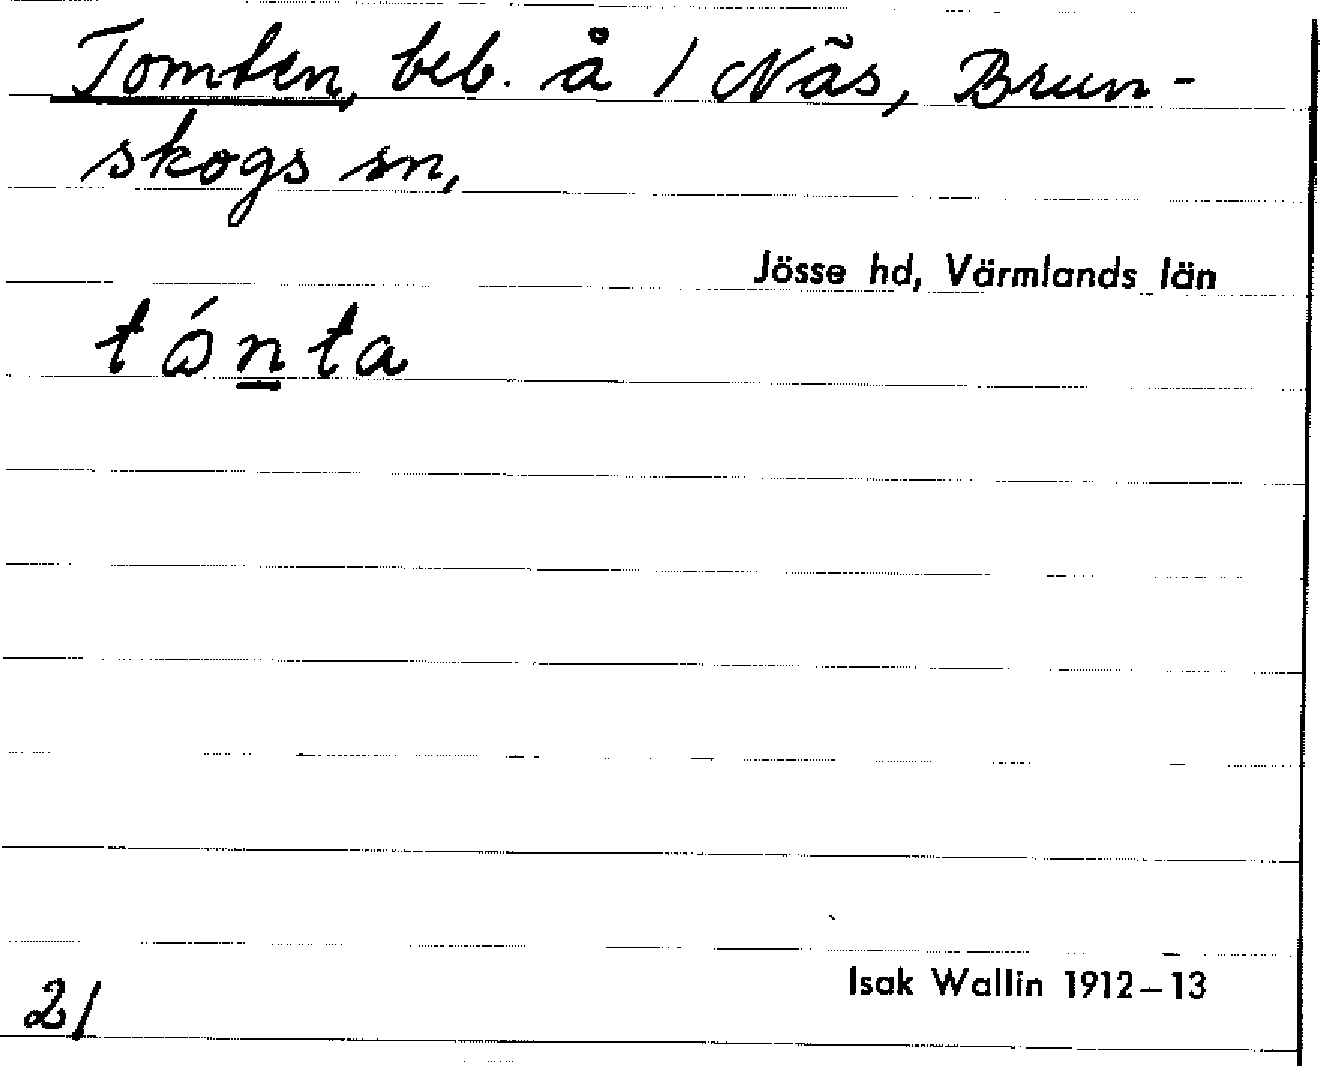 Tomten, beb. å 1 Näs, Brun-
skogs sn,
Jösse hd, Värmlands län
tónta
Isak Wallin 1912–13
21